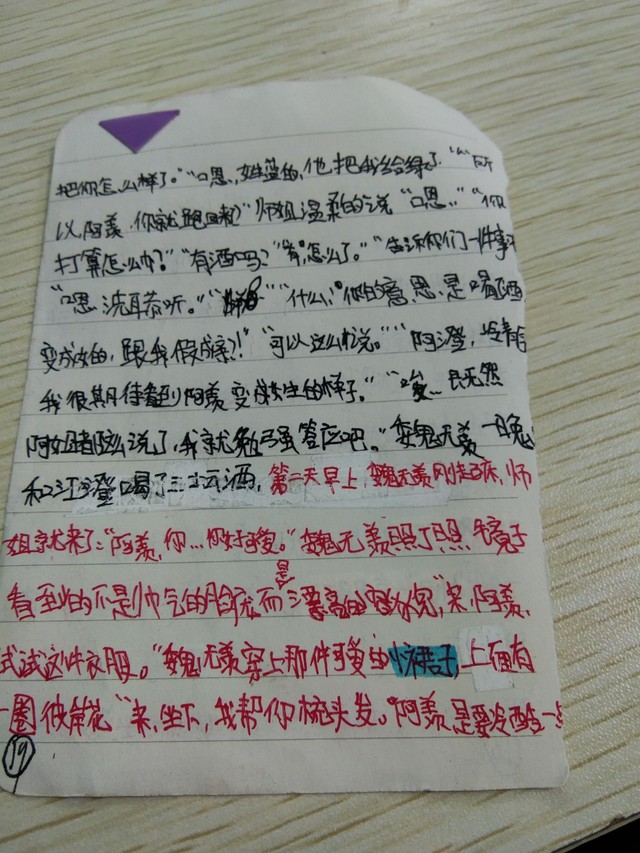 把你怎么样了。"“口恩,姓蓝的,他把我给绿了.""所
以,阿羡,你就跑回来?"师姐温柔的说"口恩.""你
打算怎么办?""有酒吗?""有,怎么了。""告诉你们一件事
"口恩洗耳恭听。""什么,你的意思是喝酒
变成女的,跟我假成亲?!""可以这么说。""阿澄,
我很期待看到阿羡变成女生的样子。""唉…既无然
阿姐都这么说了,我就勉弓虽答应吧。"魏无羡一晚
和江澄喝了三坛酒,第二天早上,魏无羡刚起床,师
姐就来了:"阿羡,你…你好可爱。"魏无羡照了照镜子
看到的不是帅气的脸庞而是漂亮的
试试这件衣服。"魏无羡穿上那件可爱的裙子,上面有
一圈彼岸花"来,坐下,我帮你梳头发。"阿羡是要冷酷一点
19